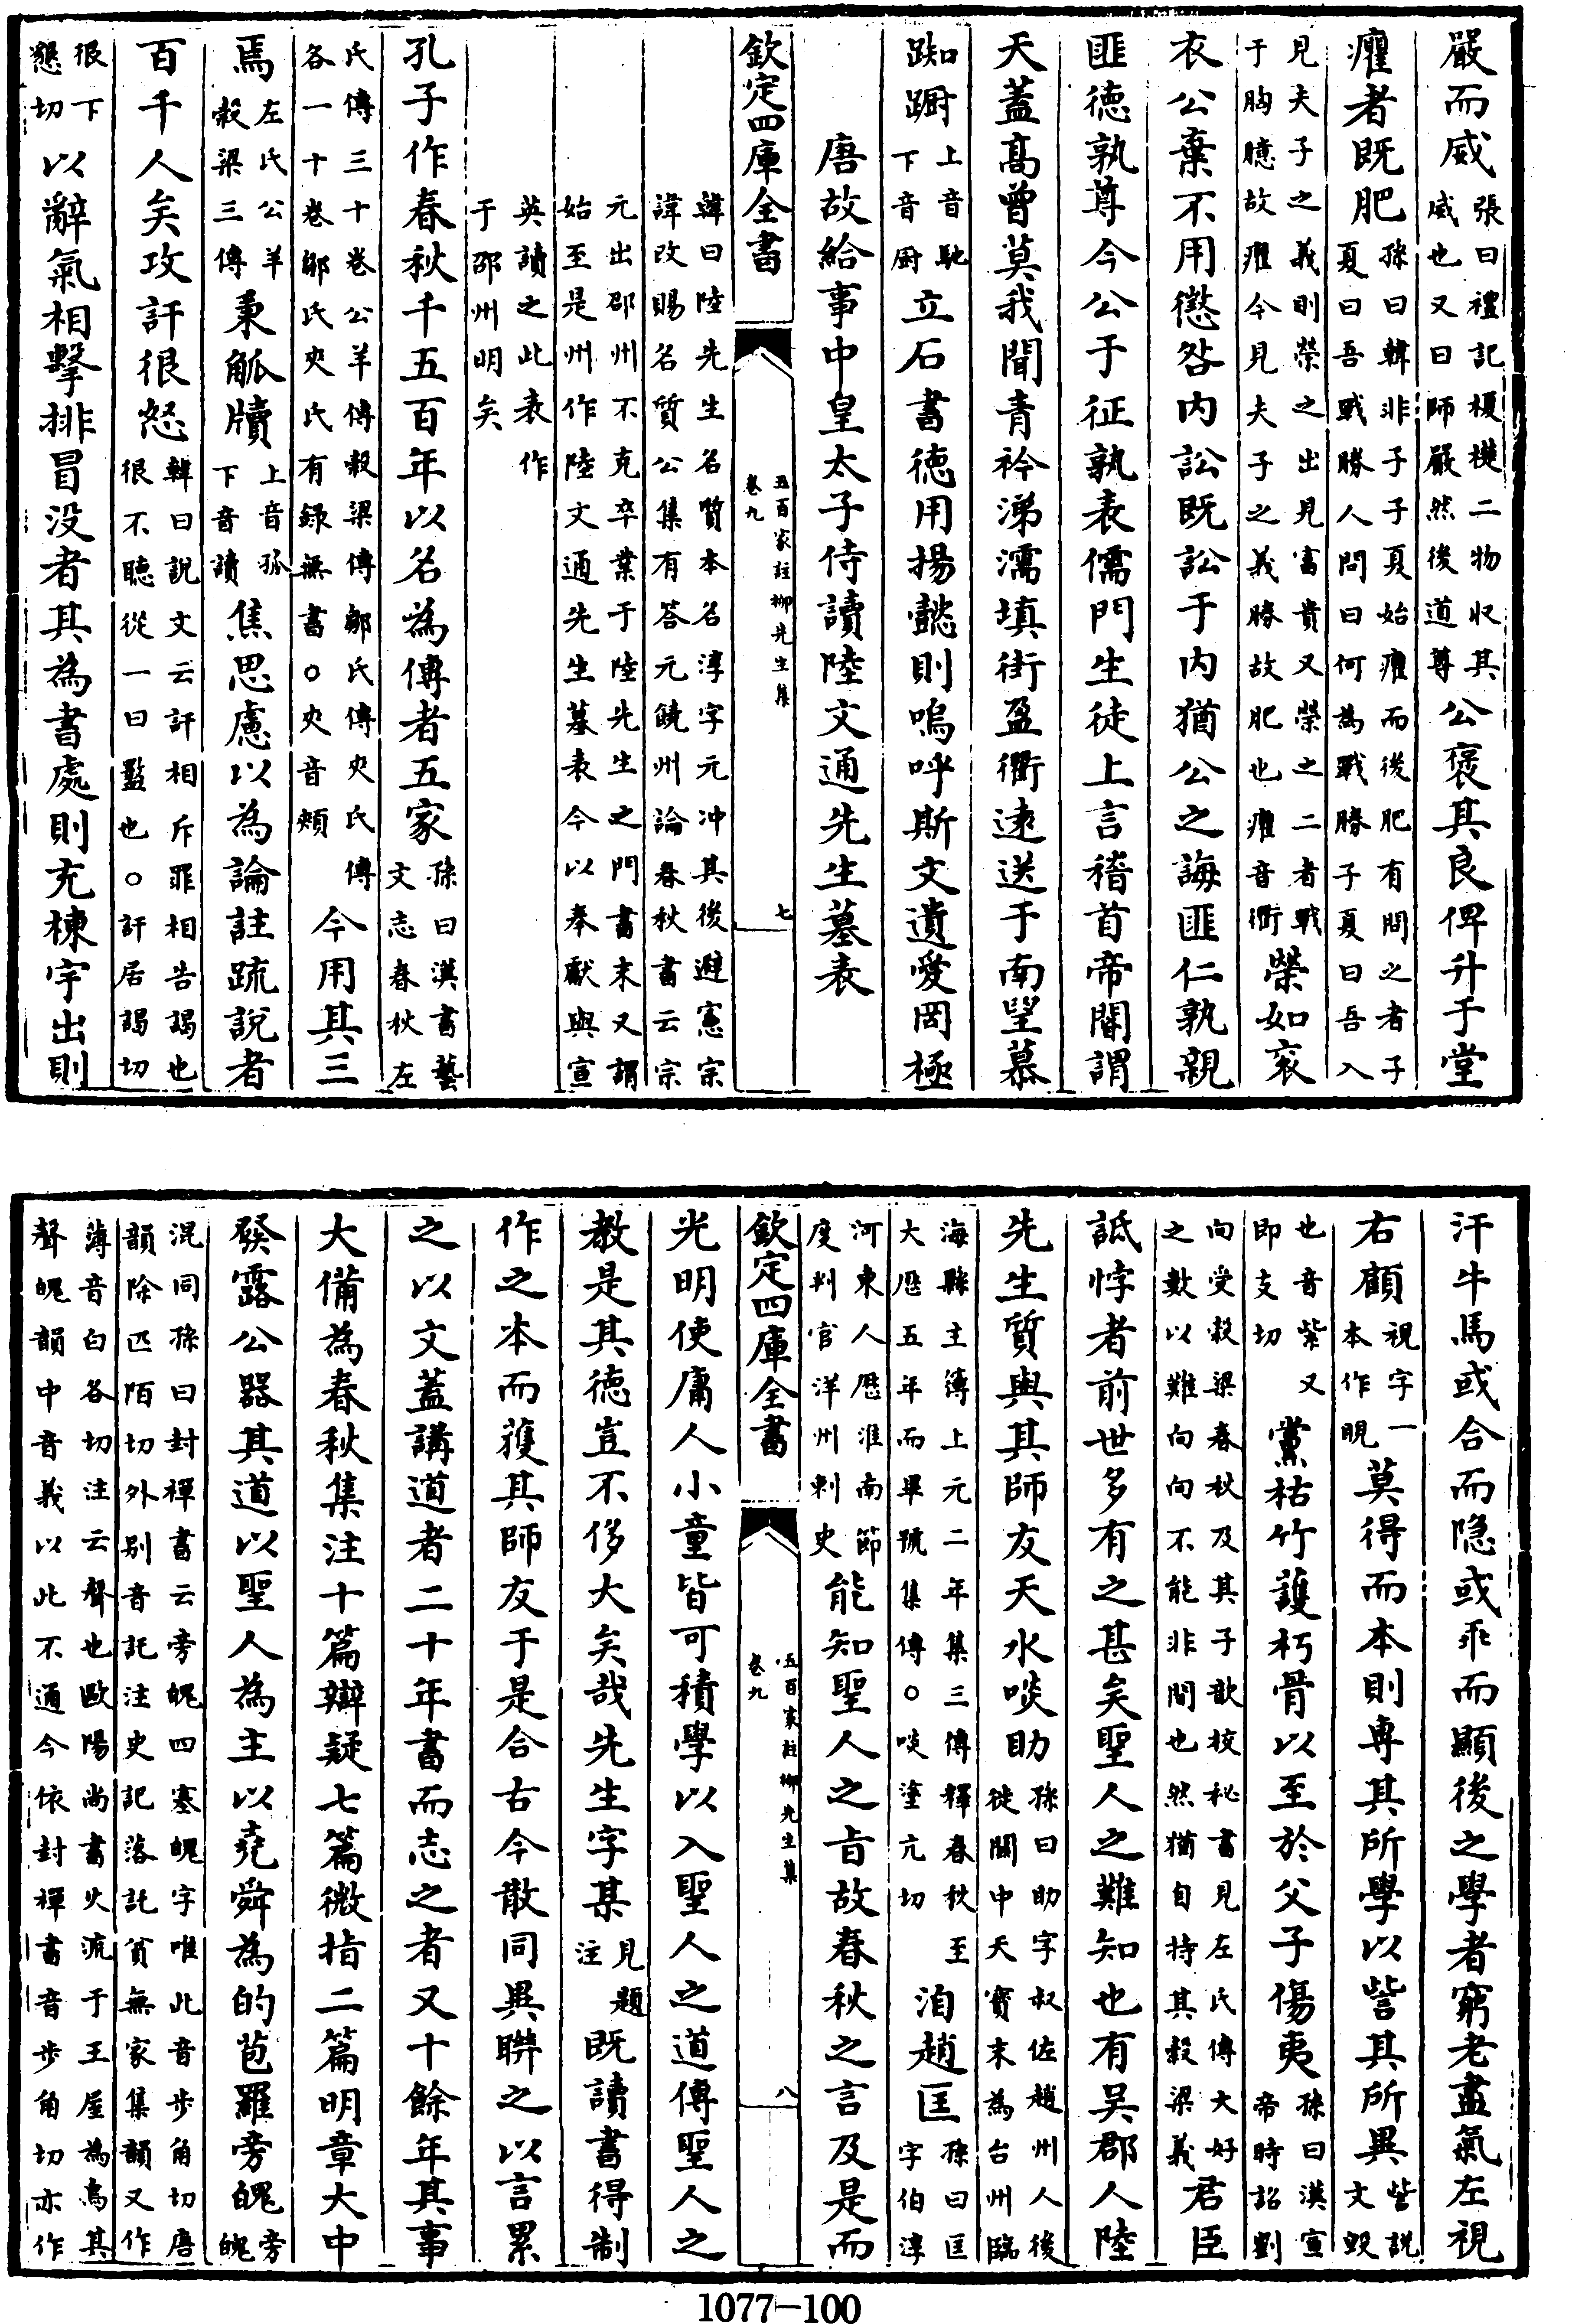 嚴而威張曰禮記榎楚二物收其威也又曰師嚴然後道尊公褒其良俾升于堂
癯者既肥孫曰韓非子子夏始癯而後肥有問之者子夏曰吾戰勝人問曰何為戰勝子夏曰吾入
見夫子之義則榮之出見富貴又榮之二者戰于胸臆故癯今見夫子之義勝故肥也癯音衢榮如衮
衣公棄不用懲咎内訟既訟于内猶公之誨匪仁孰親
匪徳孰尊今公于征孰表儒門生徒上言稽首帝閽謂
天蓋髙曾莫我聞青衿涕濡填街盈衢逺送于南望慕
踟蹰上音馳下音厨立石書徳用揚懿則嗚呼斯文遺愛罔極
唐故給事中皇太子侍讀陸文通先生墓表
欽定四庫全書 五百家註柳先生集 卷九 七
韓曰陸先生名質本名淳字元冲其後避憲宗諱改賜名質公集有答元饒州論春秋書云宗
元出邵州不克卒業于陸先生之門書末又謂始至是州作陸文通先生墓表今以奉獻與宣
英讀之此表作于邵州明矣
孔子作春秋千五百年以名為傳者五家孫曰漢書藝文志春秋左
氏傳三十卷公羊傳榖梁傳鄒氏傳夾氏傳各一十卷鄒氏夾氏有録無書○夾音頰今用其三
焉左氏公羊榖梁三傳秉觚牘上音孤下音讀焦思慮以為論註疏說者
百千人矣攻訐很怒韓曰說文云訐相斥罪相告謁也很不聽從一曰盭也○訐居謁切
很下懇切以辭氣相擊排冒没者其為書處則充棟宇出則
汗牛馬或合而隐或乖而顯後之學者窮老盡氣左視
右顧視字一本作睍莫得而本則専其所學以訾其所異訾說文毀
也音紫又即支切黨枯竹護朽骨以至於父子傷夷孫曰漢宣帝時詔劉
向受榖梁春秋及其子歆校秘書見左氏傳大好之數以難向向不能非間也然猶自持其榖梁義君臣
詆悖者前世多有之甚矣聖人之難知也有吴郡人陸
先生質與其師友天水啖助孫曰助字叔佐趙州人後徙關中天寳末為台州臨
海縣主簿上元二年集三傳釋春秋至大厯五年而畢號集傳○啖塗亢切洎趙匡孫曰匡字伯淳
河東人歴淮南節度判官洋州刺史能知聖人之㫖故春秋之言及是而
欽定四庫全書 五百家註柳先生集 卷九 八
光明使庸人小童皆可積學以入聖人之道傳聖人之
教是其徳豈不侈大矣哉先生字某見題注既讀書得制
作之本而獲其師友于是合古今散同異聯之以言累
之以文蓋講道者二十年書而志之者又十餘年其事
大備為春秋集注十篇辯疑七篇微指二篇明章大中
發露公器其道以聖人為主以堯舜為的苞羅旁魄旁魄
混同孫曰封禪書云旁魄四塞魄字唯此音歩角切唐韻除匹陌切外别音託注史記落託貧無家集韻又作
薄音白各切注云聲也歐陽尚書火流于王屋為烏其聲魄韻中音義以此不通今依封禪書音歩角切亦作
1077-100